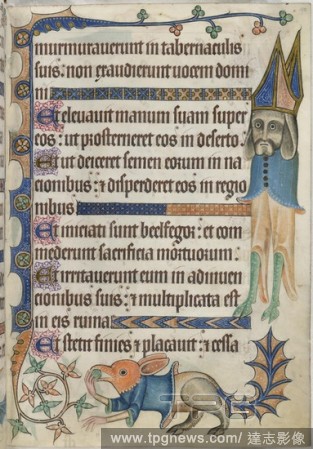 murmurauerunt in tabernaculis
suis: non exaudierunt uocem domi
ni
Et eleuauit manum suam super
eos: ut prosterneret eos in deserto.
Et ut deiceret semen eorum in na
cionibus: & disperderet eos in regio
nibus
Et iniciati sunt beelfegor: et com
mederunt sacrificia mortuorum.
Et irritauerunt eum in adinuen
cionibus suis: & multiplicata est
in eis ruina
Et stetit finees & placauit: & cessa
www.tpgnews.com/ 達志影像